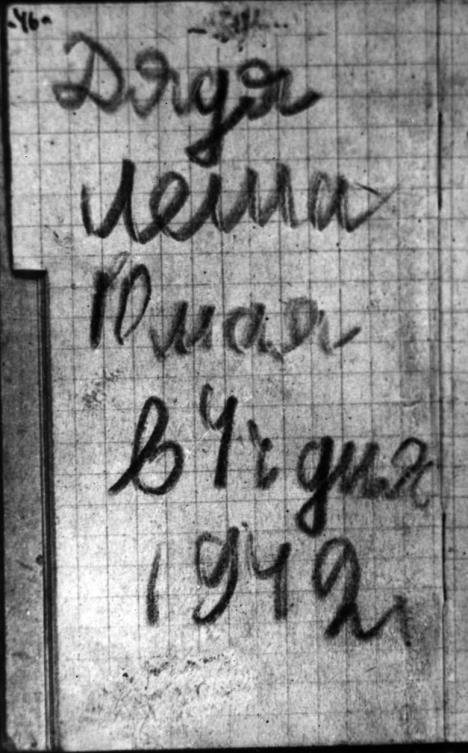 -46-
Дядя
леша
10 мая
в 4 ч дня
1942